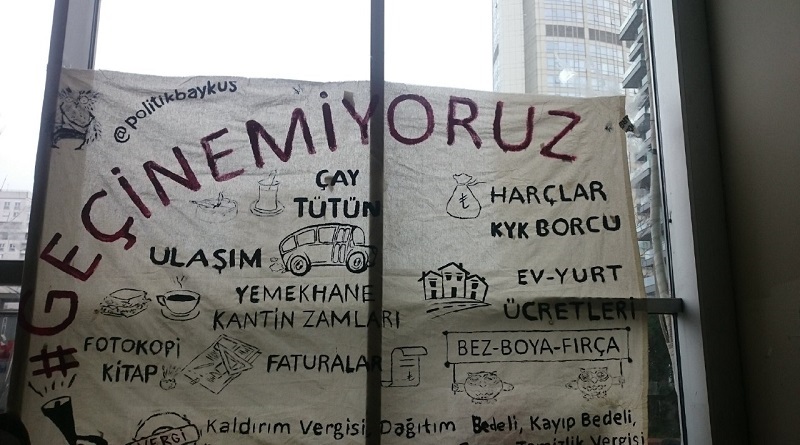 @politikbaykus
#GEÇİNEMİYORUZ
ÇAY
TÜTÜN
HARÇLAR
KYK BORCU
ULAŞIM
EV-YURT
ÜCRETLERİ
YEMEKHANE
KANTİN ZAMLARI
FOTOKOPİ
KİTAP
FATURALAR
BEZ-BOYA-FIRÇA
VERGİ
Kaldırım Vergisi, Dağıtım Bedeli, Kayıp Bedeli,
Temizlik Vergisi